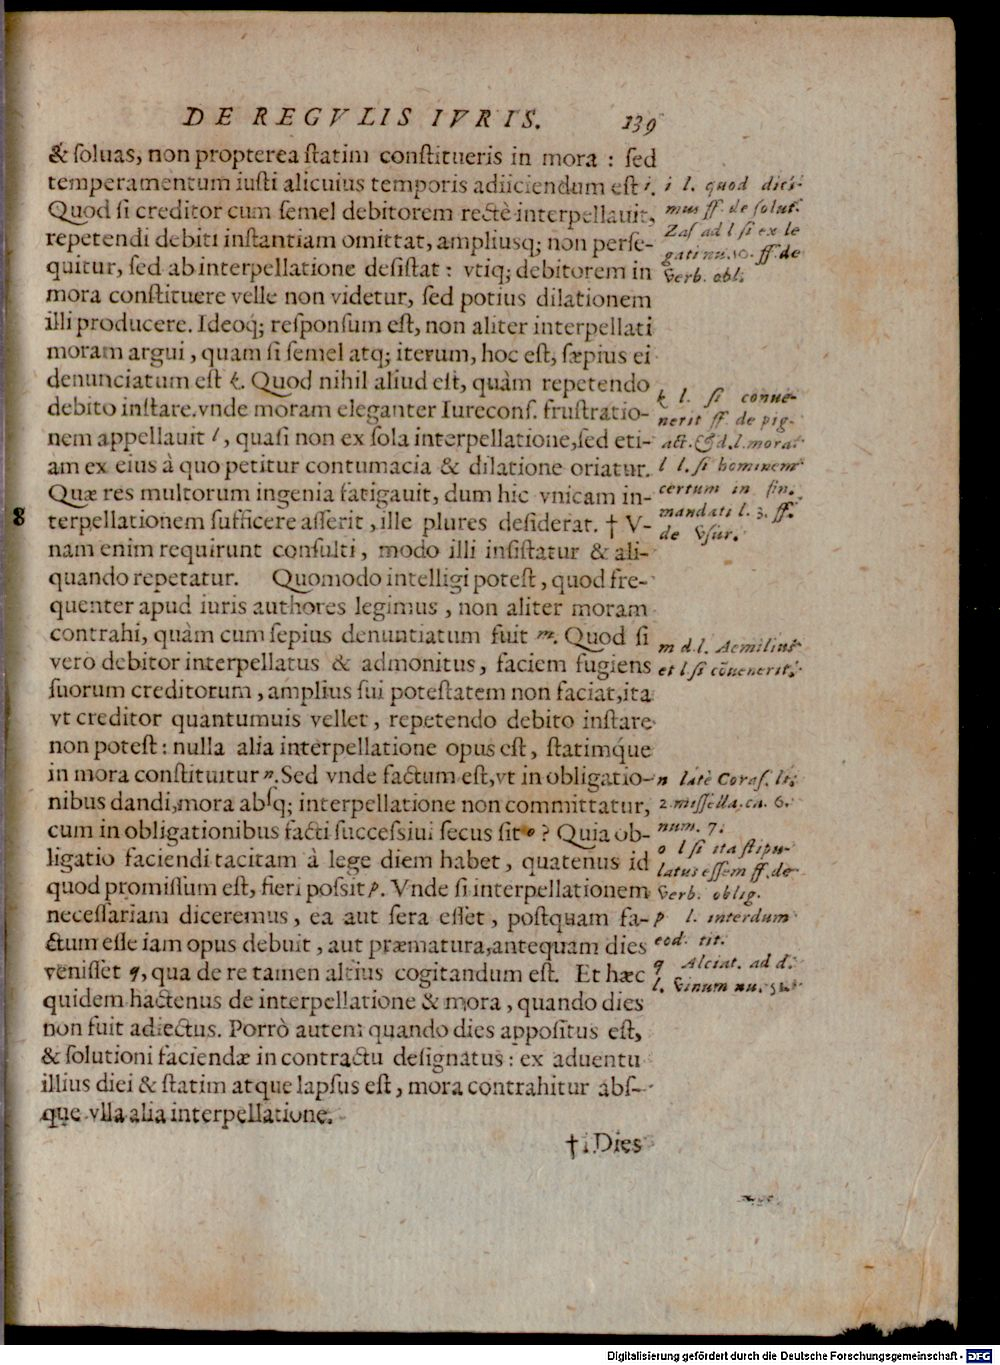 DE REGVLIS IVRIS. 139
& ſoluas, non propterea ſtatim conſtitueris in mora : ſed
temperamentum iuſti alicuius temporis adiiciendum eſt i.
Quod ſi creditor cum ſemel debitorem rectè interpellauit,
repetendi debiti inſtantiam omittat, ampliusq; non perſe-
quitur, ſed ab interpellatione deſiſtat : vtiq; debitorem in
mora conſtituere velle non videtur, ſed potius dilationem
illi producere. Ideoq; reſponſum eſt, non aliter interpellati
moram argui, quam ſi ſemel atq; iterum, hoc eſt, ſæpius ei
denunciatum eſt k. Quod nihil aliud eſt, quàm repetendo
debito inſtare. vnde moram eleganter Iureconſ. fruſtratio-
nem appellauit l, quaſi non ex ſola interpellatione, ſed eti-
am ex eius à quo petitur contumacia & dilatione oriatur.
Quæ res multorum ingenia fatigauit, dum hic vnicam in-
8 terpellationem ſufficere aſſerit, ille plures deſiderat. † V-
nam enim requirunt conſulti, modo illi inſiſtatur & ali-
quando repetatur. Quomodo intelligi poteſt, quod fre-
quenter apud iuris authores legimus, non aliter moram
contrahi, quàm cum ſepius denuntiatum fuit m. Quod ſi
vero debitor interpellatus & admonitus, faciem fugiens
ſuorum creditorum, amplius ſui poteſtatem non faciat, ita
vt creditor quantumuis vellet, repetendo debito inſtare
non poteſt : nulla alia interpellatione opus eſt, ſtatimq́ue
in mora conſtituitur n. Sed vnde factum eſt, vt in obligatio-
nibus dandi, mora abſq; interpellatione non committatur,
cum in obligationibus facti ſucceſsiui ſecus ſit o? Quia ob-
ligatio faciendi tacitam à lege diem habet, quatenus id
quod promiſſum eſt, fieri poſsit p. Vnde ſi interpellationem
neceſſariam diceremus, ea aut ſera eſſet, poſtquam fa-
ctum eſſe iam opus debuit, aut præmatura, antequam dies
veniſſet q, qua de re tamen altius cogitandum eſt. Et hæc
quidem hactenus de interpellatione & mora, quando dies
non fuit adiectus. Porrò autem quando dies appoſitus eſt,
& ſolutioni faciendæ in contractu deſignatus : ex aduentu
illius diei & ſtatim atque lapſus eſt, mora contrahitur abſ-
que vlla alia interpellatione.
† i. Dies
i l. quod dici-
mus ff. de ſolut.
Zaſ ad l ſi ex le
gati nu. 10. ff. de
verb. obli.
k l. ſi conue-
nerit ff. de pig-
act. & d. l. mora.
l l. ſi hominem
certum in fin.
mandati l. 3. ff.
de vſur.
m d. l. Aemilius
et l ſi cōuenerit.
n latè Coraſ. li.
2. miſſella. ca. 6.
num. 7.
o l ſi ita ſtipu-
latus eſſem ff. de
verb. oblig.
p l. interdum
eod. tit.
q Alciat. ad d.
l. vinum nu.
Digitalisierung gefördert durch die Deutsche Forschungsgemeinschaft - DFG